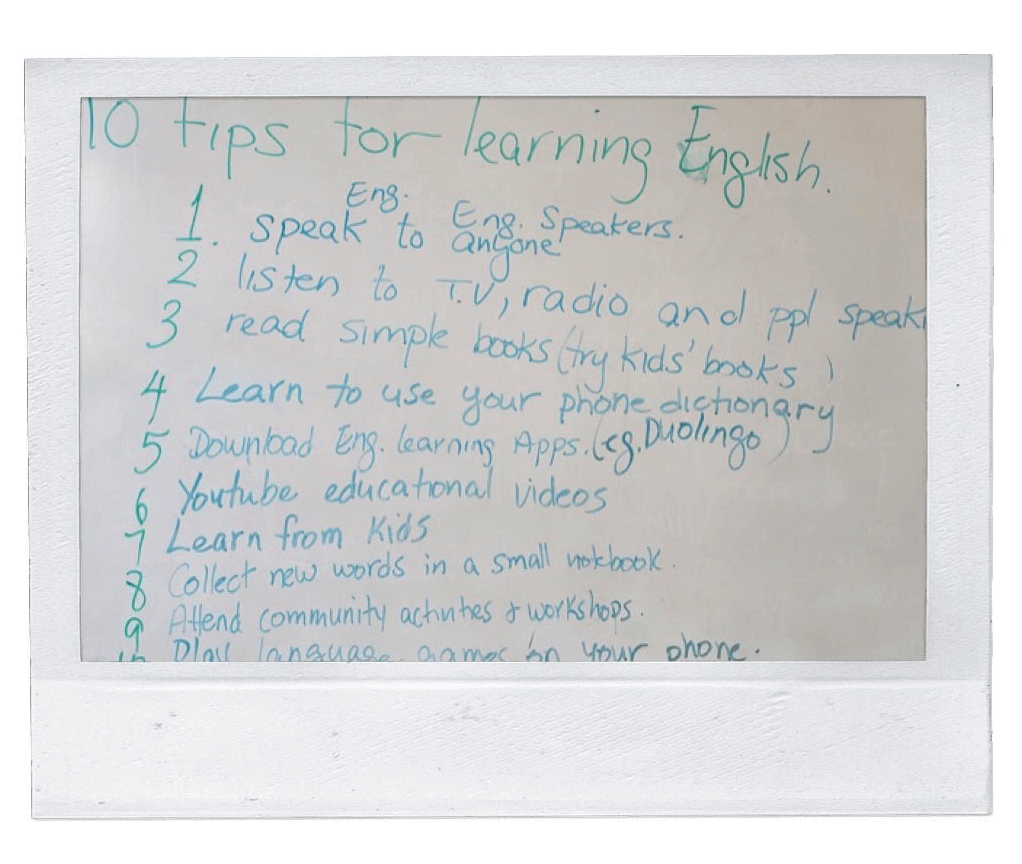 10 tips for learning English.
1. speak Eng. to Eng. Speakers.
anyone
2 listen to T.V, radio and ppl speaki
3 read simple books (try kids' books )
4 Learn to use your phone dictionary
5 Download Eng. learning Apps. (eg. Duolingo )
6 Youtube educational videos
7 Learn from Kids
8 Collect new words in a small notebook.
9 Attend community activities & workshops.
10 Play language games on your phone.